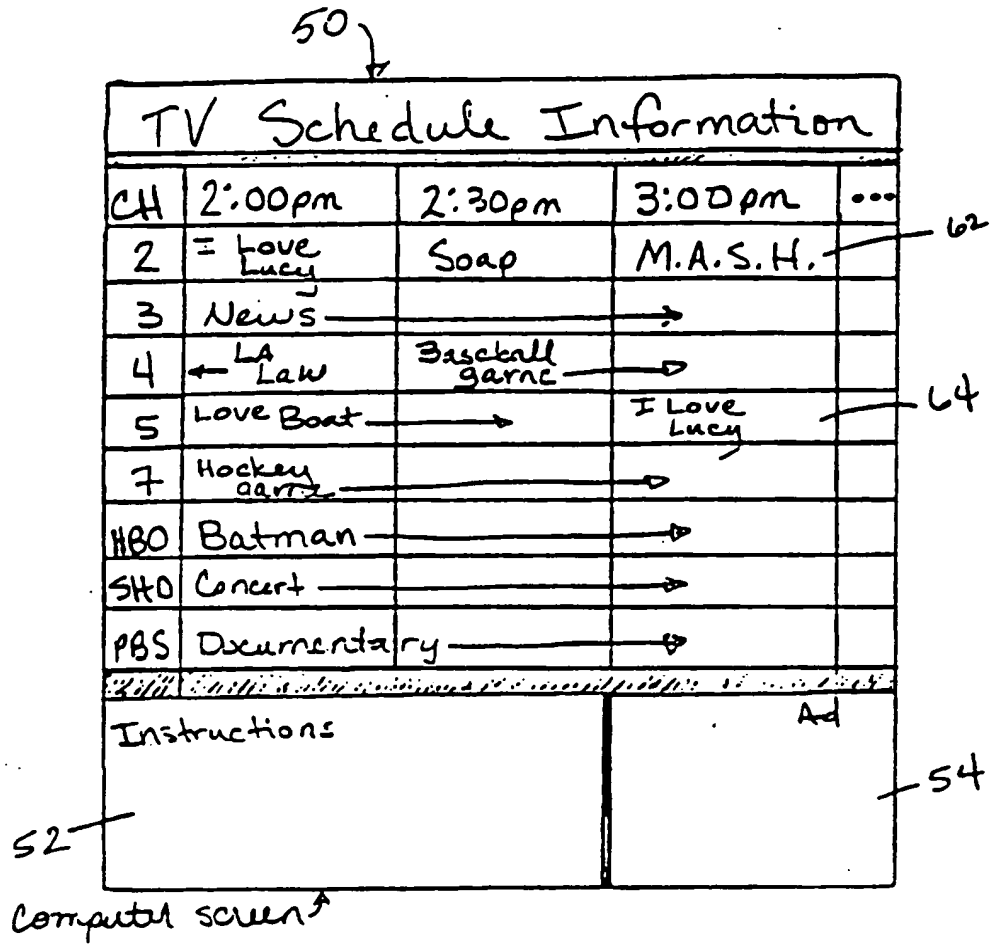 50
TV Schedule Information
CH 2:00pm 2:30pm 3:00pm ...
62
2 I Love Lucy Soap M.A.S.H.
3 News
4 LA Law Baseball game
5 Love Boat I Love Lucy 64
7 Hockey game
HBO Batman
SHO Concert
PBS Documentary
Instructions Ad
54
52
Computer screen